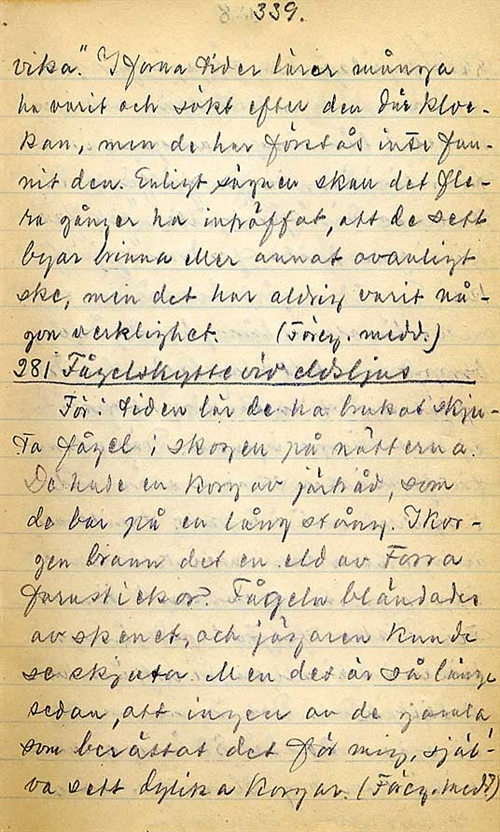 339.
vika." I forna tider lärer många
ha varit och sökt efter den där kloc-
kan, men de har förstås inte fun-
nit den. Enligt sägnen skall det fle-
ra gånger ha inträffat, att de sett
byar brinna eller annat ovanligt
ske, men det har aldrig varit nå-
gon verklighet. (Föreg. medd.)
281 Fågelskytte vid eldsljus
För i tiden lär de ha brukat skju-
ta fågel i skogen på nätterna.
De hade en korg av järtråd, som
de bar på en lång stång. I kor-
gen brann det en eld av torra
furustickor. Fågeln bländades
av skenet, och jägaren kunde
se skjuta. Men det är så länge
sedan, att ingen av de gamla
som berättat det för mig, själ-
va sett dylika korgar. (Föreg. medd)